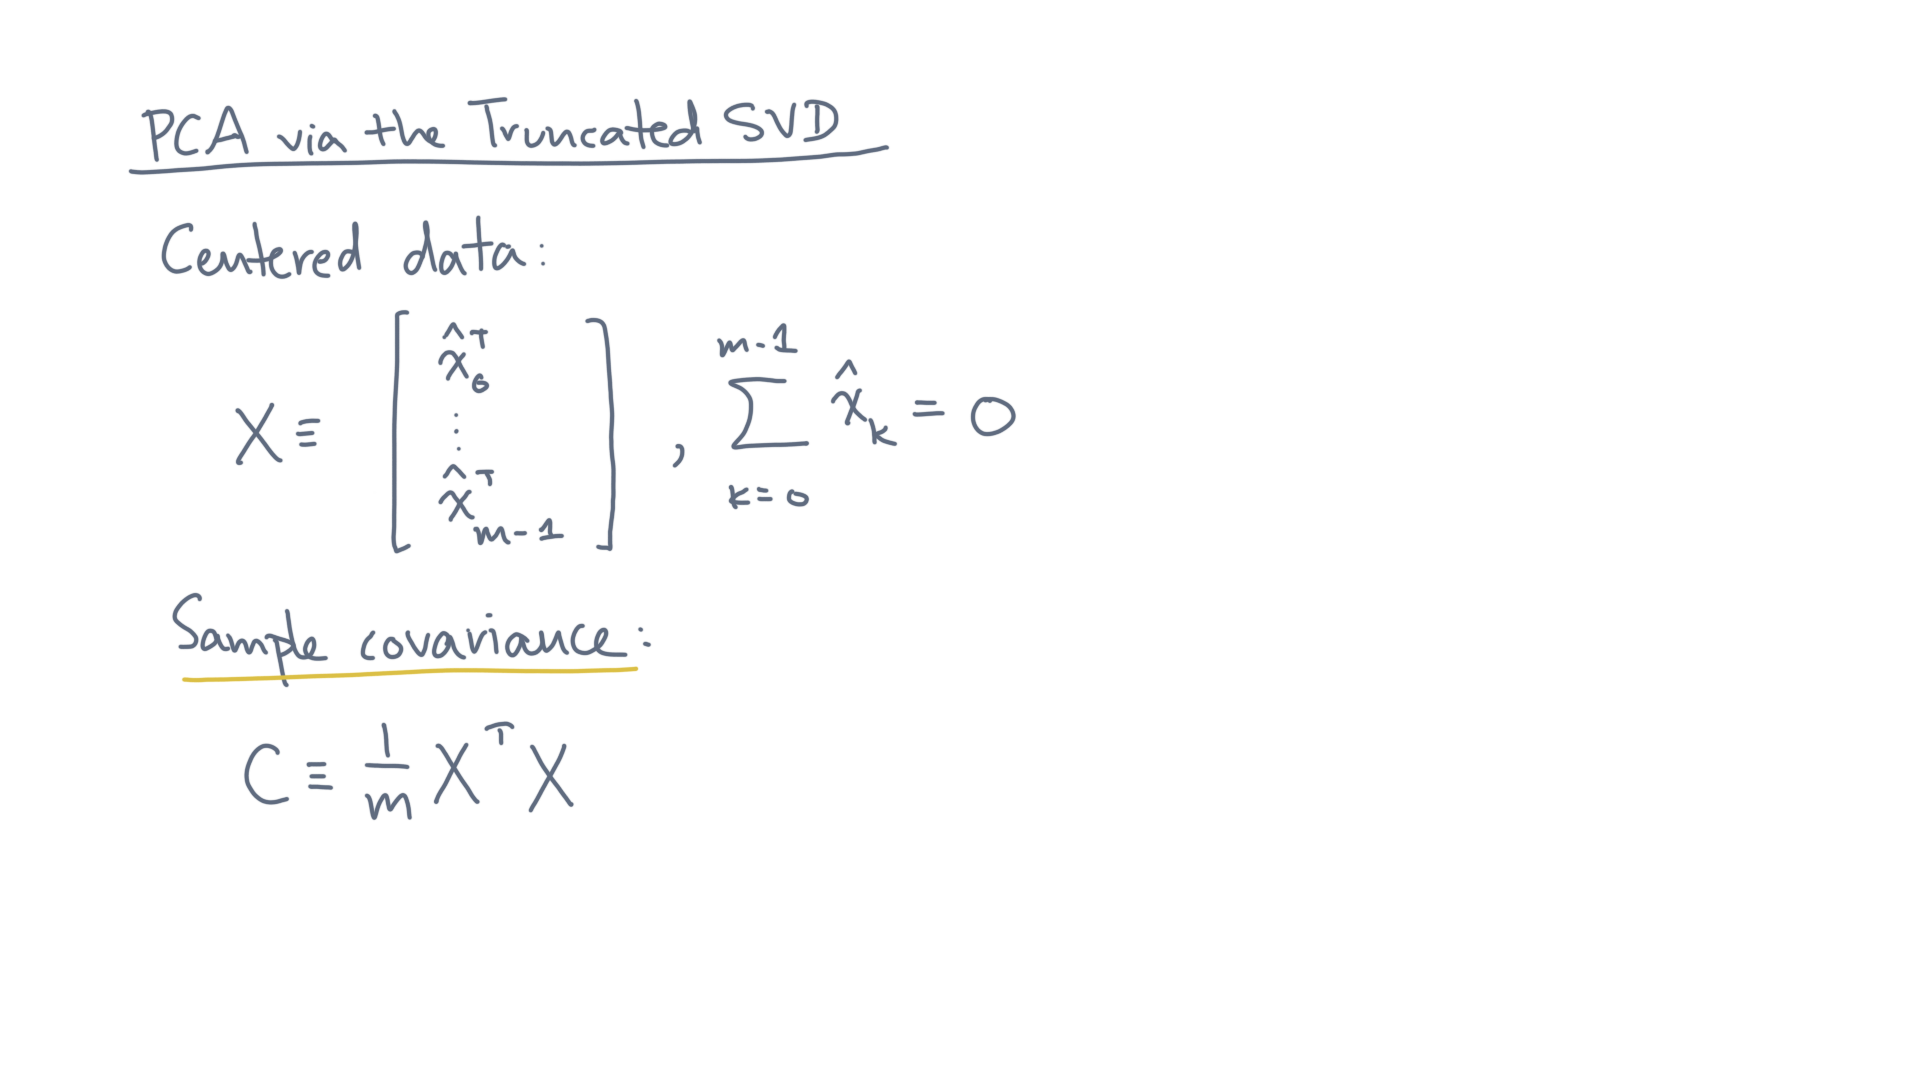 PCA via the Truncated SVD
Centered data:
X ≡ [ x̂₀ᵀ ⋮ x̂ᵀₘ₋₁ ] , ∑ₖ₌₀ᵐ⁻¹ x̂ₖ = 0
Sample covariance:
C ≡ 1/m Xᵀ X